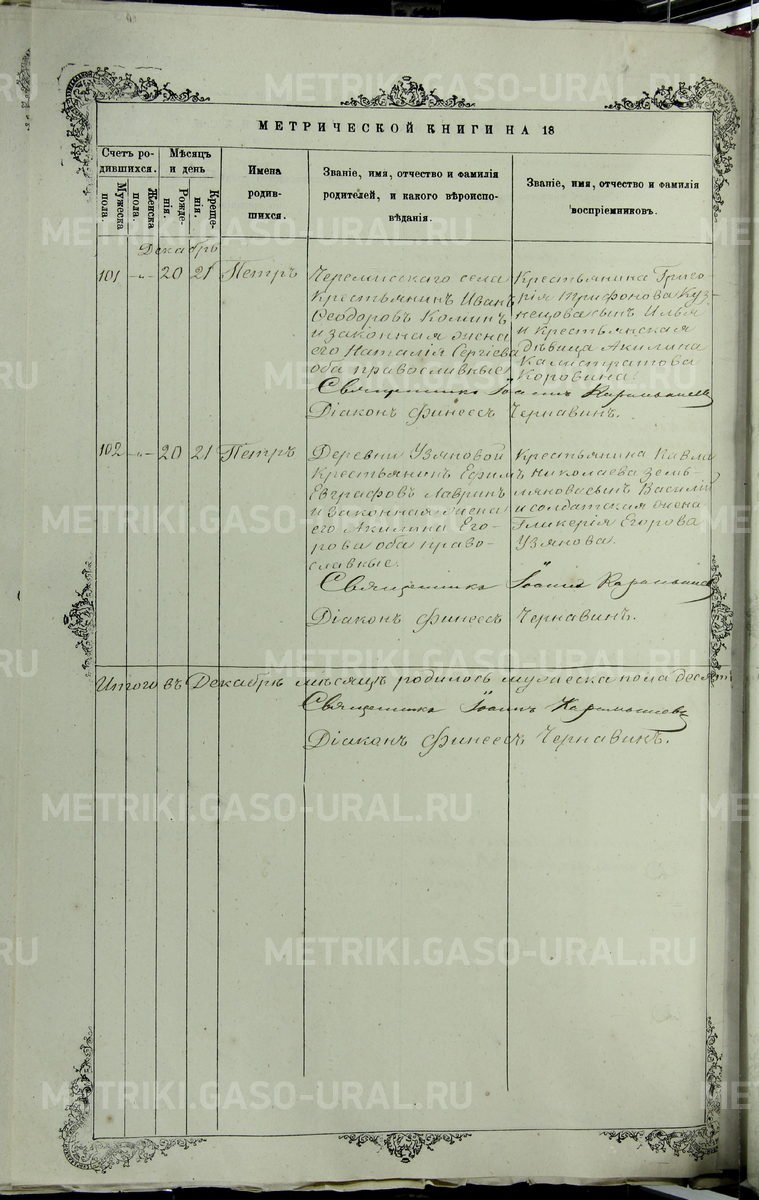 МЕТРИЧЕСКОЙ КНИГИ НА 18
Счетъ ро-
дившихся.
Мужеска пола.
Женска пола.
Мѣсяцъ
и день
Рожде-
нія.
Креще-
нія.
Имена
родив-
шихся.
Званіе, имя, отчество и фамилія
родителей, и какого вѣроиспо-
вѣданія.
Званіе, имя, отчество и фамилія
воспріемниковъ.
Декабрь
101 -„- 20 21 Петръ
Черемисскаго села
крестьянинъ Иванъ
Ѳеодоровъ Коминъ
и законная жена
его Наталія Сергіева
оба православные
Крестьянина Григо
рія Трифонова Куз-
нецова сынъ Илья
и крестьянская
дѣвица Акилина
Калистратова
Коровина.
Священникъ Іоаннъ Карамышевъ
Діаконъ Финеесъ Чернавинъ.
102 -„- 20 21 Петръ
Деревни Узяновой
крестьянинъ Ефимъ
Евграфовъ Лавринъ
и законная жена
его Акилина Его-
рова оба право-
славные.
Крестьянина Павла
Николаева Земь-
лянова сынъ Василій
и солдатская жена
Гликерія Егорова
Узянова.
Священникъ Іоаннъ Карамышевъ
Діаконъ Финеесъ Чернавинъ.
Итого въ Декабрѣ мѣсяцѣ родилось мужеска пола десять
Священникъ Іоаннъ Карамышевъ
Діаконъ Финеесъ Чернавинъ.
METRIKI.GASO-URAL.RU